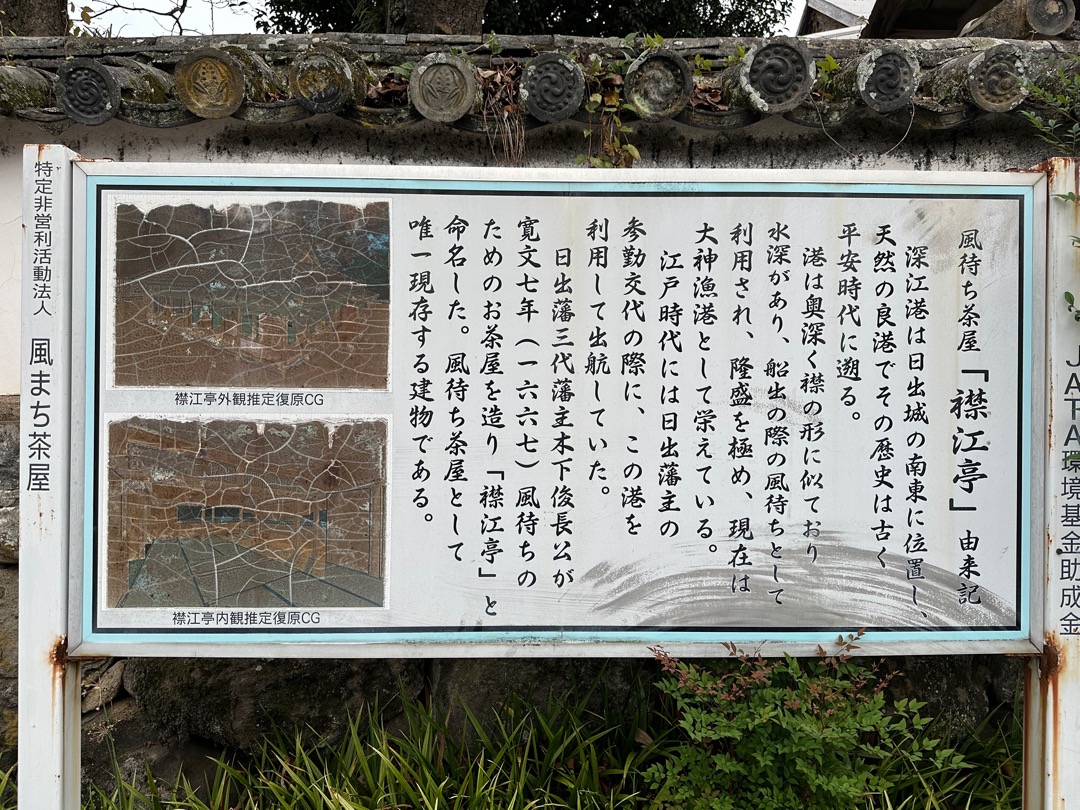 風待ち茶屋「襟江亭」由来記
深江港は日出城の南東に位置し、
天然の良港でその歴史は古く
平安時代に遡る。
港は奥深く襟の形に似ており
水深があり、船出の際の風待ちとして
利用され、隆盛を極め、現在は
大神漁港として栄えている。
江戸時代には日出藩主の
参勤交代の際に、この港を
利用して出航していた。
日出藩三代藩主木下俊長公が
寛文七年（一六六七）風待ちの
ためのお茶屋を造り「襟江亭」と
命名した。風待ち茶屋として
唯一現存する建物である。
襟江亭外観推定復原CG
襟江亭内観推定復原CG
特定非営利活動法人 風まち茶屋
JATA環境基金助成金